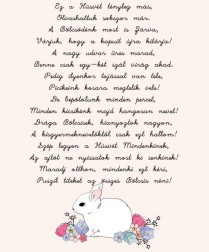 Ez a Húsvét tényleg más,
Olvashattuk sokszor más.
A Bölcsődénk most is Járva,
Várjuk, hogy a kapuit újra kitárja!
A nagy udvar üres marad,
Benne csak egy-két szál virág akad.
Pedig ilyenkor tojással van tele,
Picikeink kosara megtelik vele!
De bepótolunk minden percet,
Minden kicsikénk majd hangosan nevet!
Drága Bölcsisek, hiányoztok nagyon,
A kisgyermeknevelőktől csak ezt hallom!
Szép legyen a Húsvét Mindenkinek,
Az ajtót ne nyissátok most ki senkinek!
Maradj otthon, mindenki ezt kéri,
Puszil titeket az összes Bölcsis néni!